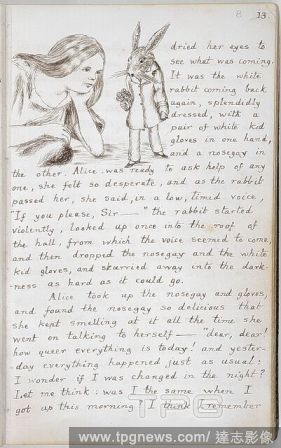 8 13.
dried her eyes to
see what was coming.
It was the white
rabbit coming back
again, splendidly
dressed, with a
pair of white kid
gloves in one hand,
and a nosegay in
the other. Alice was ready to ask help of any
one, she felt so desperate, and as the rabbit
passed her, she said, in a low, timid voice,
"If you please, Sir—" the rabbit started
violently, looked up once into the roof of
the hall, from which the voice seemed to come,
and then dropped the nosegay and the white
kid gloves, and skurried away into the dark-
-ness as hard as it could go.
Alice took up the nosegay and gloves,
and found the nosegay so delicious that
she kept smelling at it all the time she
went on talking to herself— "dear, dear!
how queer everything is today! and yester-
-day everything happened just as usual:
I wonder if I was changed in the night?
Let me think: was I the same when I
got up this morning? I think I remember
www.tpgnews.com/ 達志影像